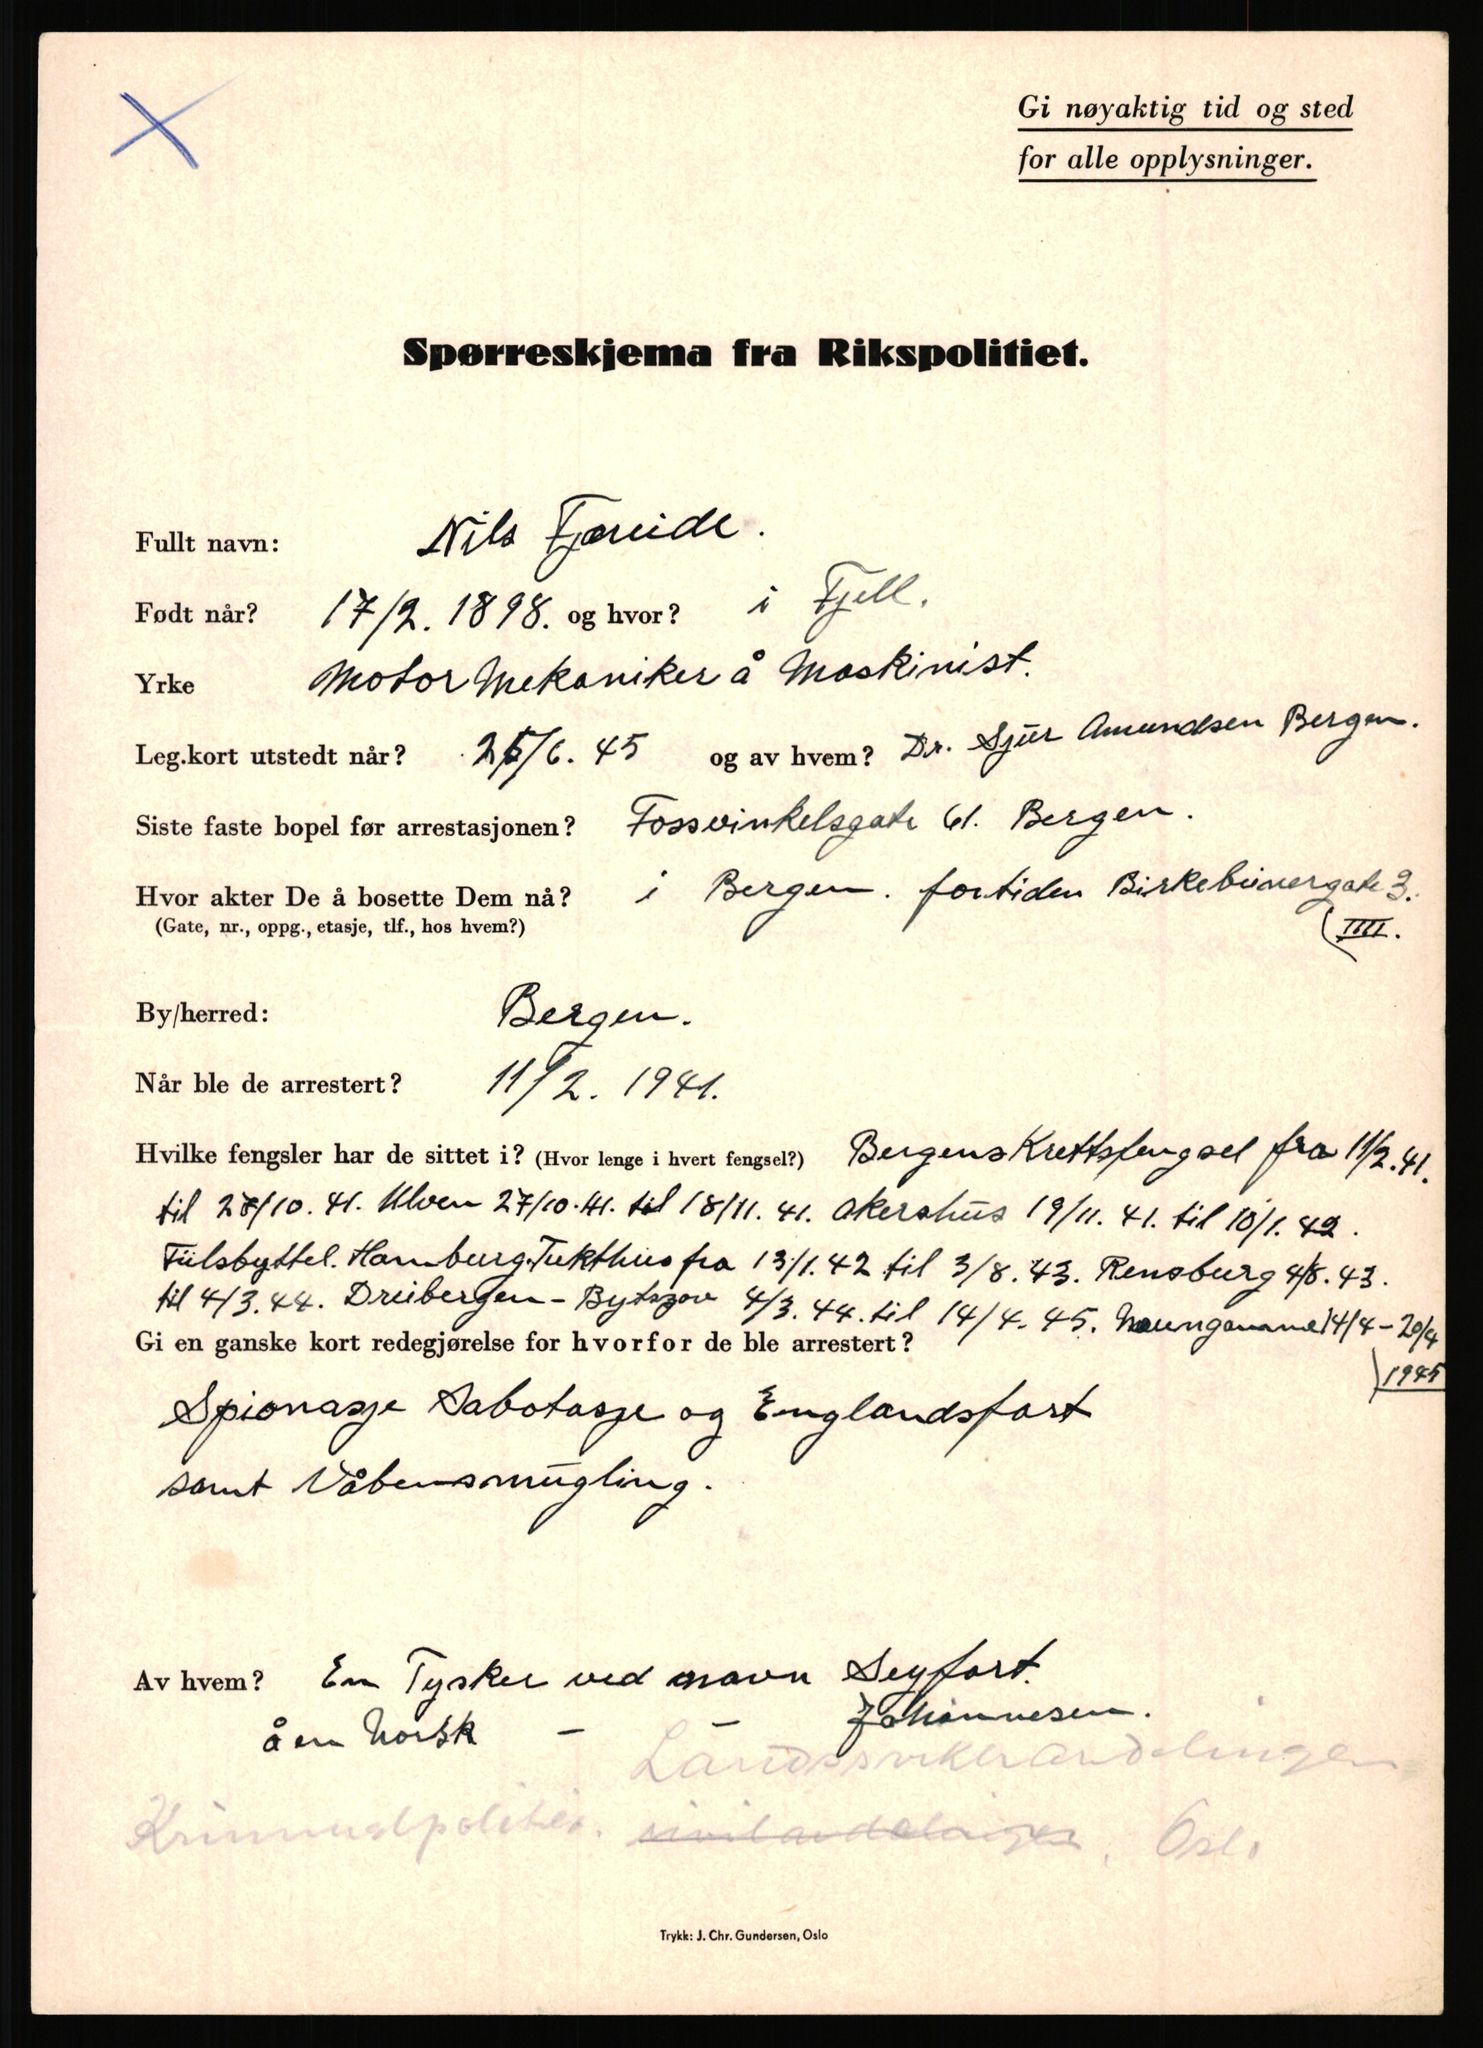 Gi nøyaktig tid og sted
for alle opplysninger.
Spørreskjema fra Rikspolitiet.
Fullt navn: Nils Fjæreide.
Født når? 17/2. 1898. og hvor? i Fjell.
Yrke Motor Mekaniker å Maskinist.
Leg.kort utstedt når? 25/6. 45 og av hvem? Dr. Sjur Amundsen Bergen.
Siste faste bopel før arrestasjonen? Fossvinkelsgate 61. Bergen.
Hvor akter De å bosette Dem nå? i Bergen. fortiden Birkebeinergate 3.
(Gate, nr., oppg., etasje, tlf., hos hvem?) (IIII.
By/herred: Bergen.
Når ble de arrestert? 11/2. 1941.
Hvilke fengsler har de sittet i? (Hvor lenge i hvert fengsel?) Bergens Krettsfengsel fra 11/2.41.
til 27/10. 41. Ulven 27/10.41. til 18/11. 41. Akershus 19/11. 41. til 10/1. 42.
Fülsbyttel. Hamburg.Tukthus fra 13/1. 42 til 3/8. 43. Rensburg 4/8. 43.
til 4/3. 44. Dreibergen - Bytzov 4/3. 44. til 14/4. 45. Neungamme 14/4 - 20/4
1945
Gi en ganske kort redegjørelse for hvorfor de ble arrestert?
Spionasje Sabotasje og Englandsfart
samt Våbensmugling.
Av hvem? En Tysker ved navn Seyfart.
å en Norsk — — Johannesen.
Landssvikeravdelingen
Kriminalpolitiet. sivilavdelingen, Oslo
Trykk: J. Chr. Gundersen, Oslo